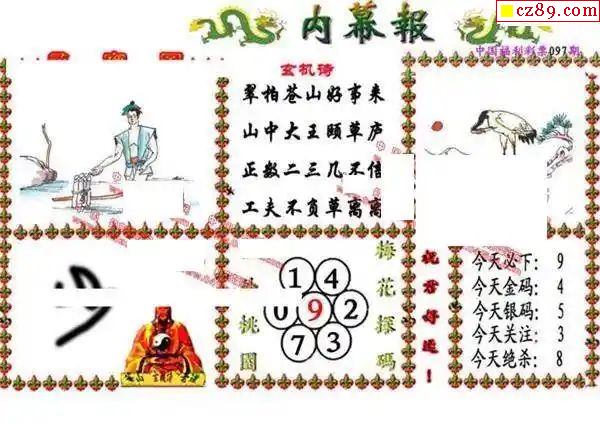 cz89.com
内幕報
中国福利彩票097期
玄机诗
翠柏苍山好事来
山中大王顾草庐
正数二三几不信
工夫不负草离离
梅花探码
桃园
1 4
0 9 2
7 3
祝君好运！
今天必下：9
今天金码：4
今天银码：5
今天关注：3
今天绝杀：8